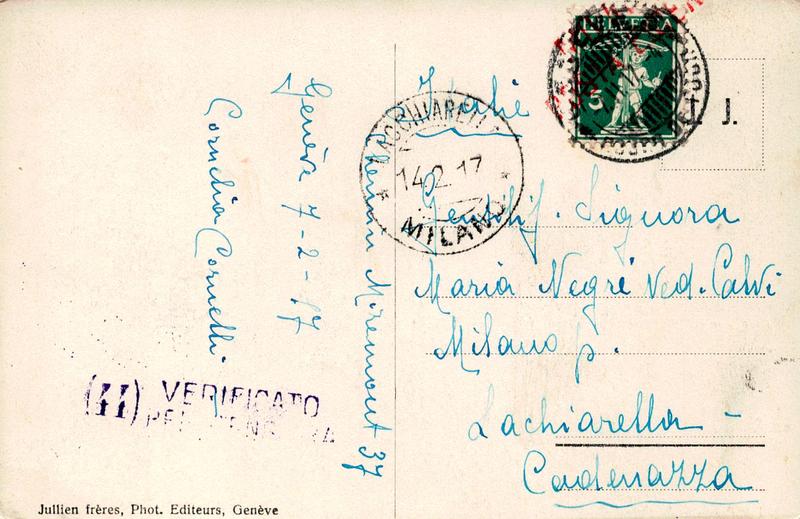 Genève 7-2-17
Cornelia Cornelli
Chemin Miremont 37
(44) VERIFICATO
PER CENSURA
Jullien frères, Phot. Editeurs, Genève
LACCHIARELLA
14.2.17
MILANO
HELVETIA
5
J. J.
Italie
Gentilij. Signora
Maria Negri Ved. Calvi
Milano p.
Lachiarella -
Cadenazza